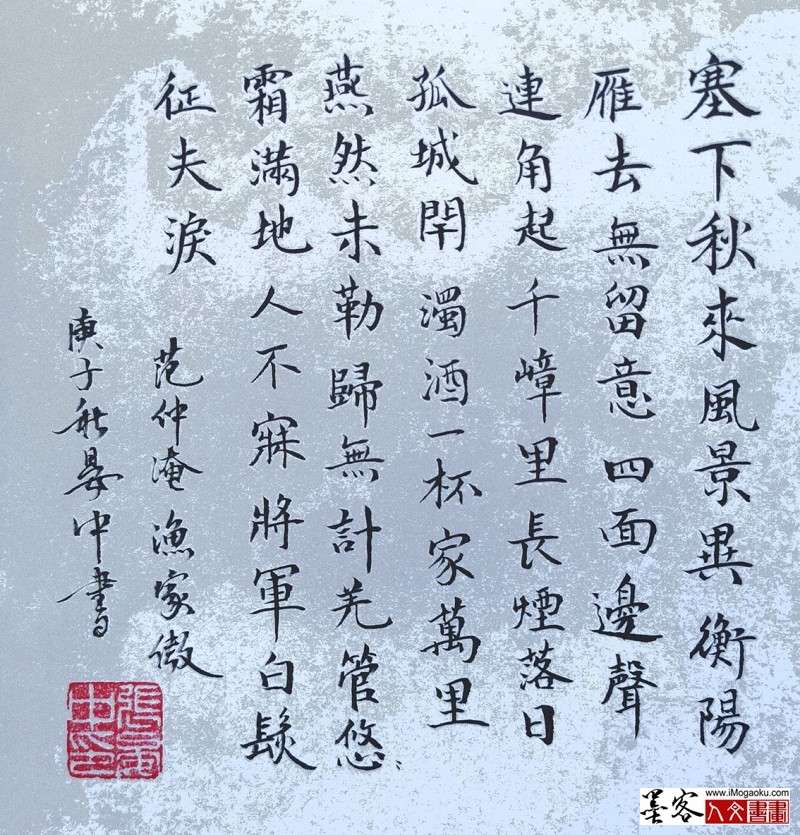 塞下秋來風景異衡陽
雁去無留意四面邊聲
連角起千嶂里長煙落日
孤城閉濁酒一杯家萬里
燕然未勒歸無計羌管悠〻
霜滿地人不寐將軍白髮
征夫淚
范仲淹漁家傲
庚子秋晏中書
墨客
www.iMogaoku.com
人文書畫